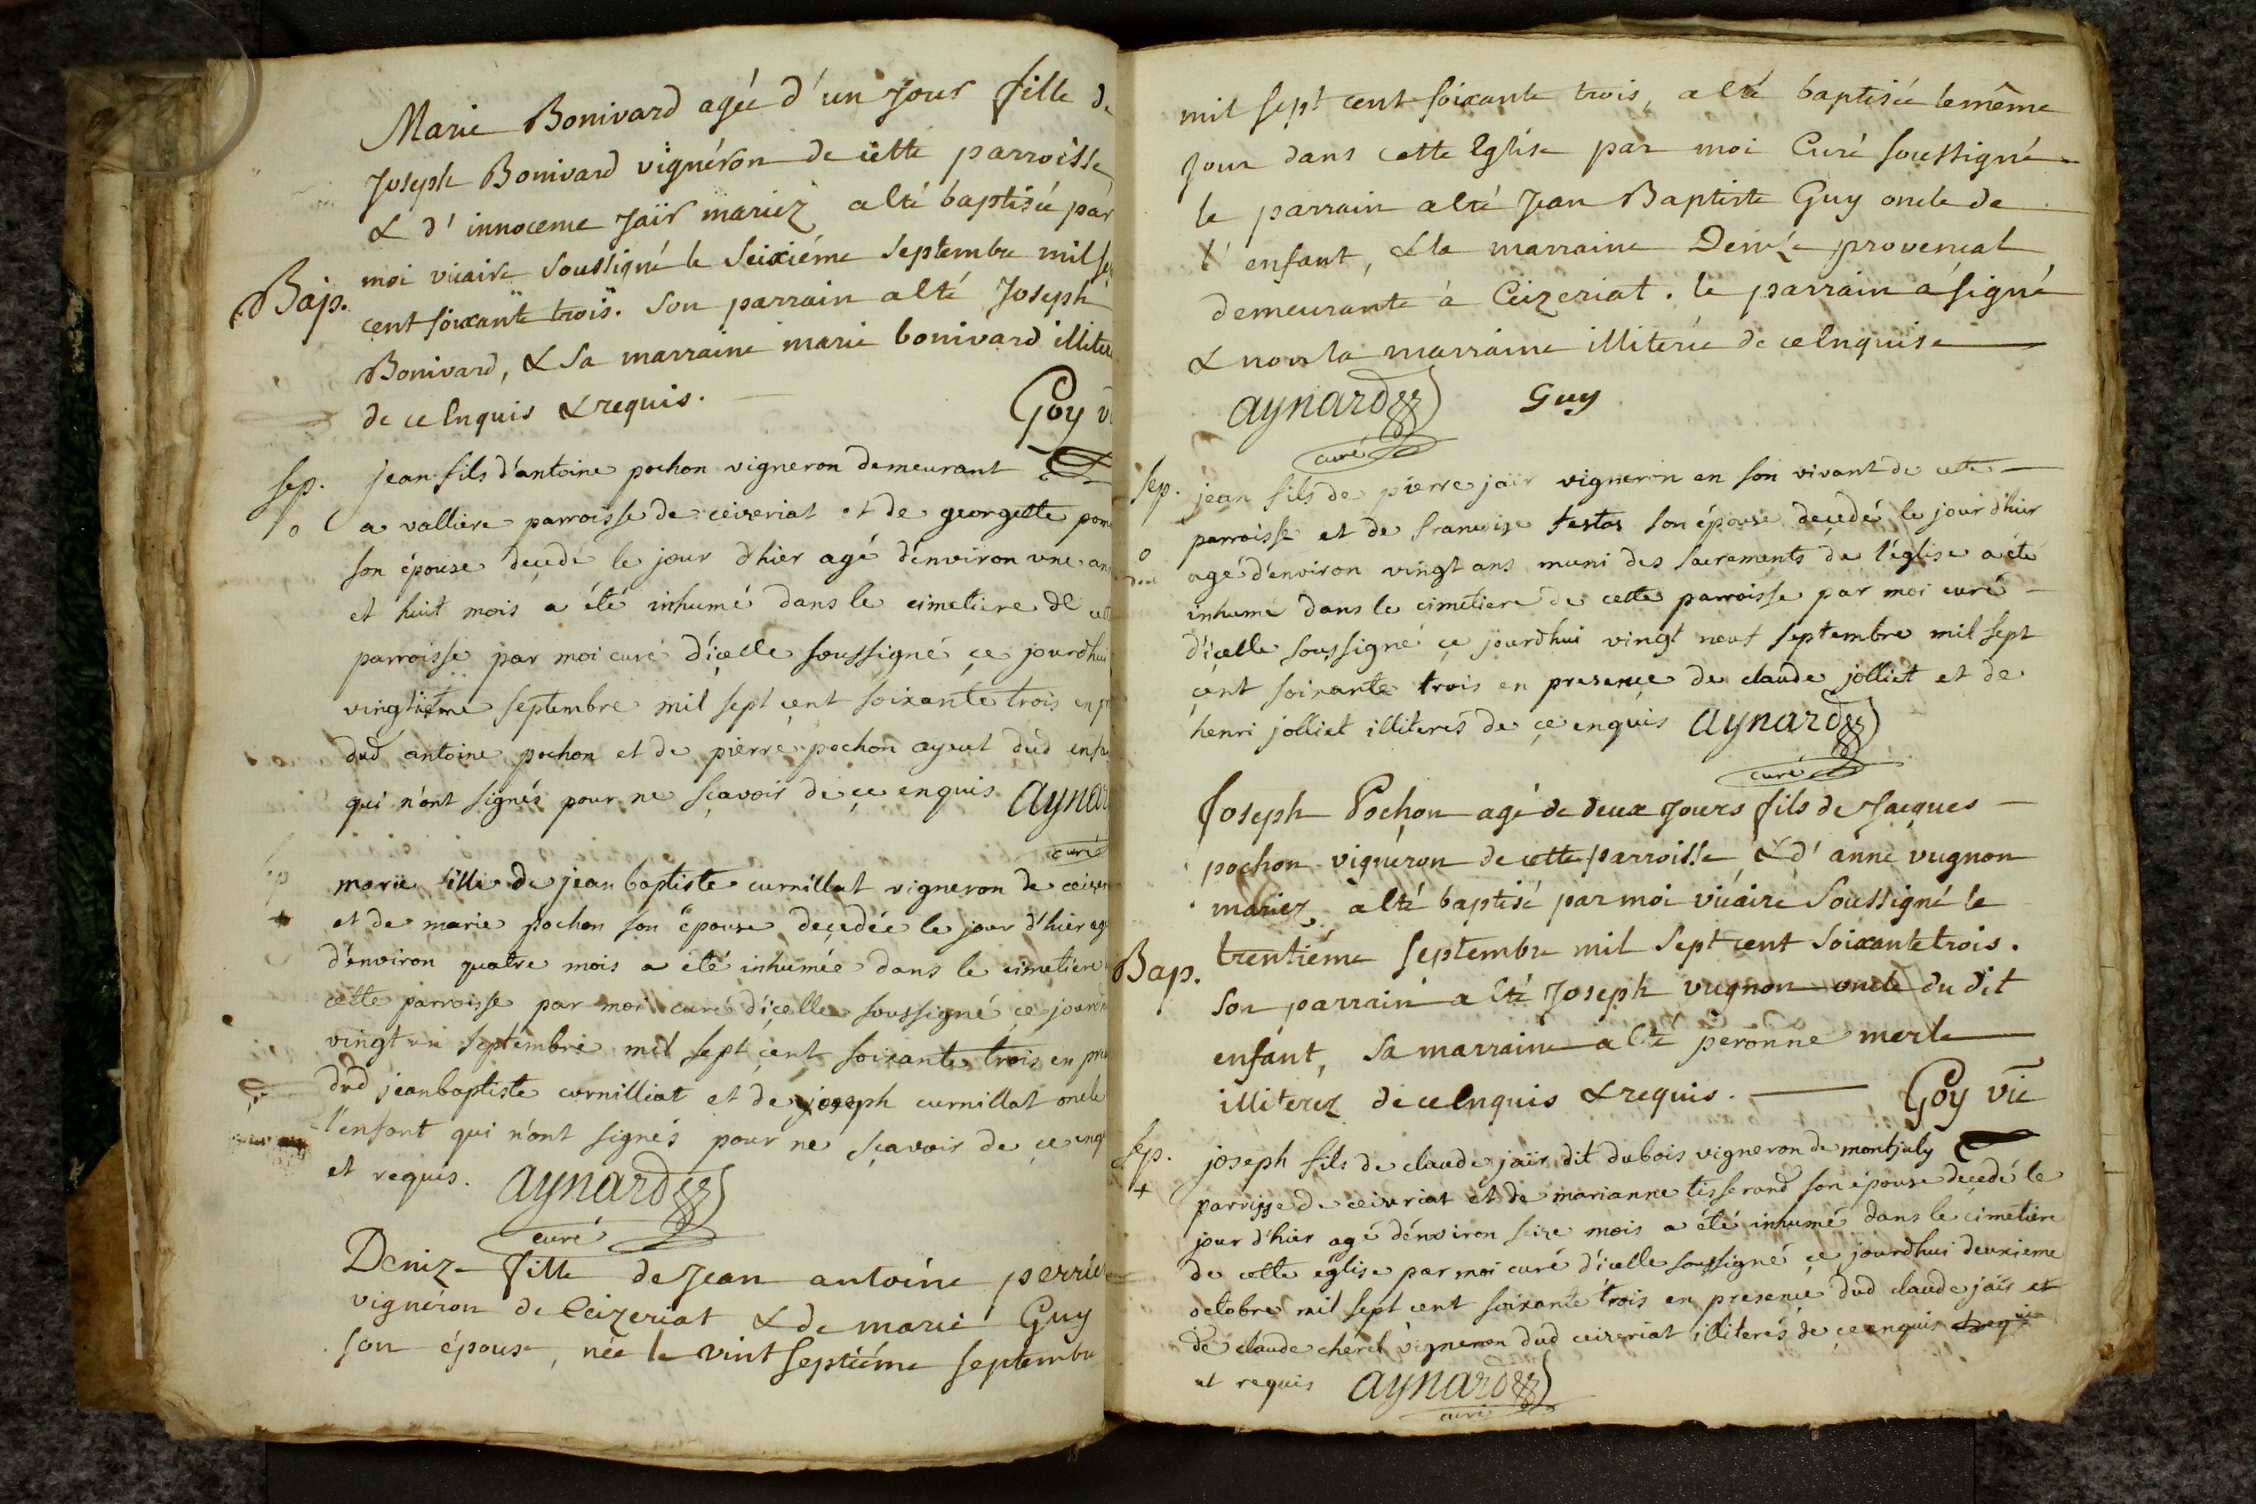 Marie Bonivard agée d'un Jour fille de
Joseph Bonivard vignéron de cette parroisse
& d'innocence Jaïr mariez a Eté baptisée par
moi vicaire Soussigné le Seiziéme Septembre mil sep
Bap.
cent soixante trois. Son parrain a Eté Joseph
Bonivard, & Sa marraine marie bonivard illiter
de ce Enquis & requis.
Goy vi
Sep.
jean fils d'antoine pochon vigneron demeurant
a valliere parroisse de ceizeriat et de georgette
son épouse deçedé le jour d'hier agé d'environ une an
et huit mois a été inhumé dans le cimetiere de cett
parroisse par moi curé d'içelle soussigné çe jourdhui
vingtieme septembre mil sept çent soixante trois en p
dud antoine pochon et de pierre pochon ayeul dud enfa
qui n'ont signés pour ne sçavoir de çe enquis aynar
curé
marie fille de jean baptiste curnillat vigneron de ceizer
et de marie pochon son épouse deçedée le jour d'hier ag
d'environ quatre mois a été inhumée dans le cimetiere
cette parroisse par moi curé d'içelle soussigné çe jourd
vingt un septembre mil sept çent soixante trois en pre
dud jean baptiste curnilliat et de joseph curnillat oncle
l'enfant qui n'ont signés pour ne sçavoir de çe enq
et requis. aynard
curé
Deniz fille de Jean antoine perrie
vignéron de Ceizeriat & de marie Guy
son épouse, née le vint septiéme septembre
mil sept cent soixante trois, a Eté baptisée le même
jour dans cette Eglise par moi Curé soussigné
le parrain a Eté Jean Baptiste Guy oncle de
l'enfant, & la marraine Denize provencal
demeurante à Ceizeriat. le parrain a signé
& non la marraine illiterée de ce Enquise
aynard Guy
curé
Sep.
jean fils de pierre jaïr vigneron en son vivant de cette
parroisse et de françoise testas son épouse deçedé le jour d'hier
agé d'environ vingt ans muni des sacrements de l'église a été
inhumé dans le cimetiere de cette parroisse par moi curé
d'içelle soussigné çe jourdhui vingt neuf septembre mil sept
çent soixante trois en presençe de claude jolliet et de
henri jolliet illiterés de çe enquis aynard
curé
Joseph Pochon agé de deux Jours fils de Jacques
pochon vignéron de cette parroisse & d'anne vugnon
mariez, a Eté baptisé par moi vicaire Soussigné le
trentiéme Septembre mil Sept cent Soixante trois.
Bap.
Son parrain a Eté Joseph vugnon oncle du dit
enfant, Sa marraine a Eté peronne merle
illiterez de ce Enquis & requis.
Goy vic
Sep.
joseph fils de claude jaïr dit dubois vigneron de montjuly
parroisse de ceizeriat et de marianne tisserand son épouse deçedé le
jour d'hier agé d'environ seize mois a été inhumé dans le cimetiere
de cette église par moi curé d'icelle soussigné çe jourdhui deuxieme
octobre mil sept cent soixante trois en presence dud claude jaïr et
de claude cherel vigneron dud ceizeriat illiterés de çe enquis
et requis aynard
curé